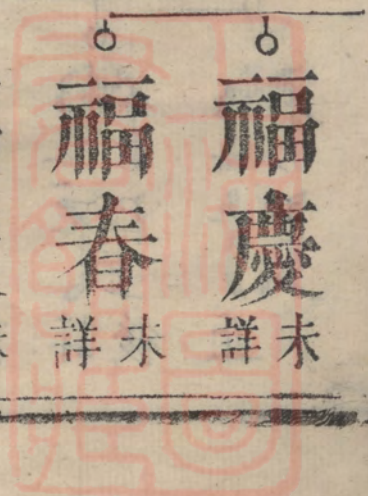 福慶 未詳
福春 未詳